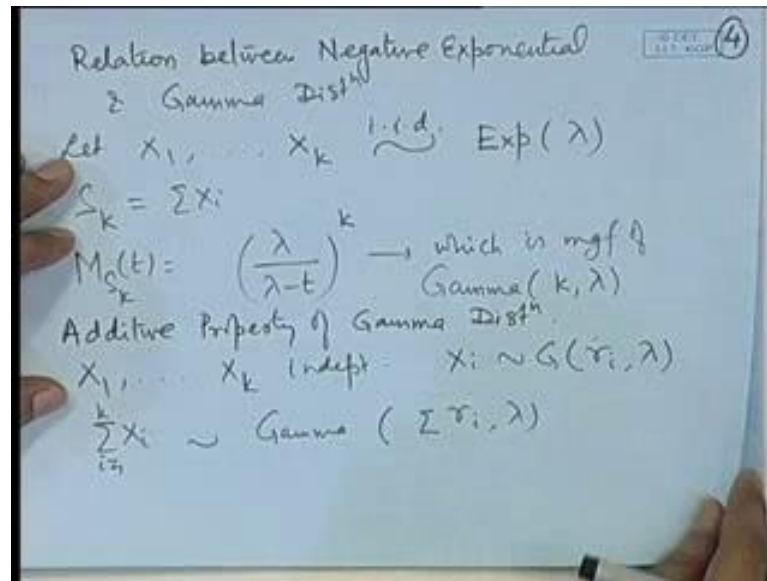 Relation between Negative Exponential
& Gamma Distⁿ
4
Let X₁, ... X_k i.i.d. ~ Exp(λ)
S_k = ΣXi
M_{S_k}(t) = (λ/(λ-t))^k → which is mgf of
Gamma(k, λ)
Additive Property of Gamma Distⁿ.
X₁, ... X_k indept. Xi ~ G(ri, λ)
Σ_{i=1}^k Xi ~ Gamma (Σri, λ)